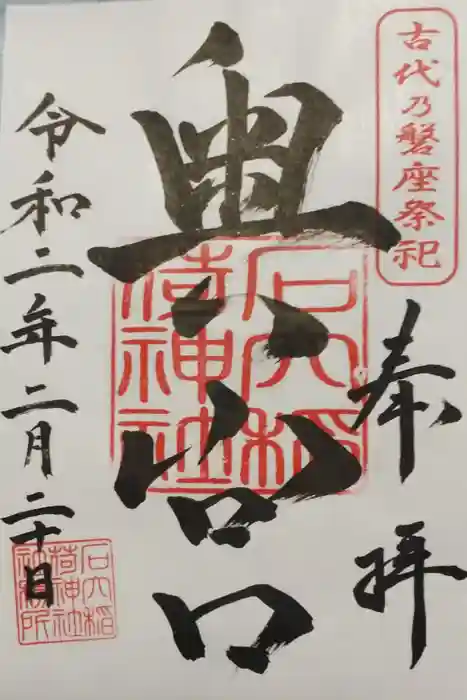 古代乃磐座祭祀
奉拝
奥宮
石穴稲
荷神社
令和二年二月二十日
石穴稲
荷神社
社務所